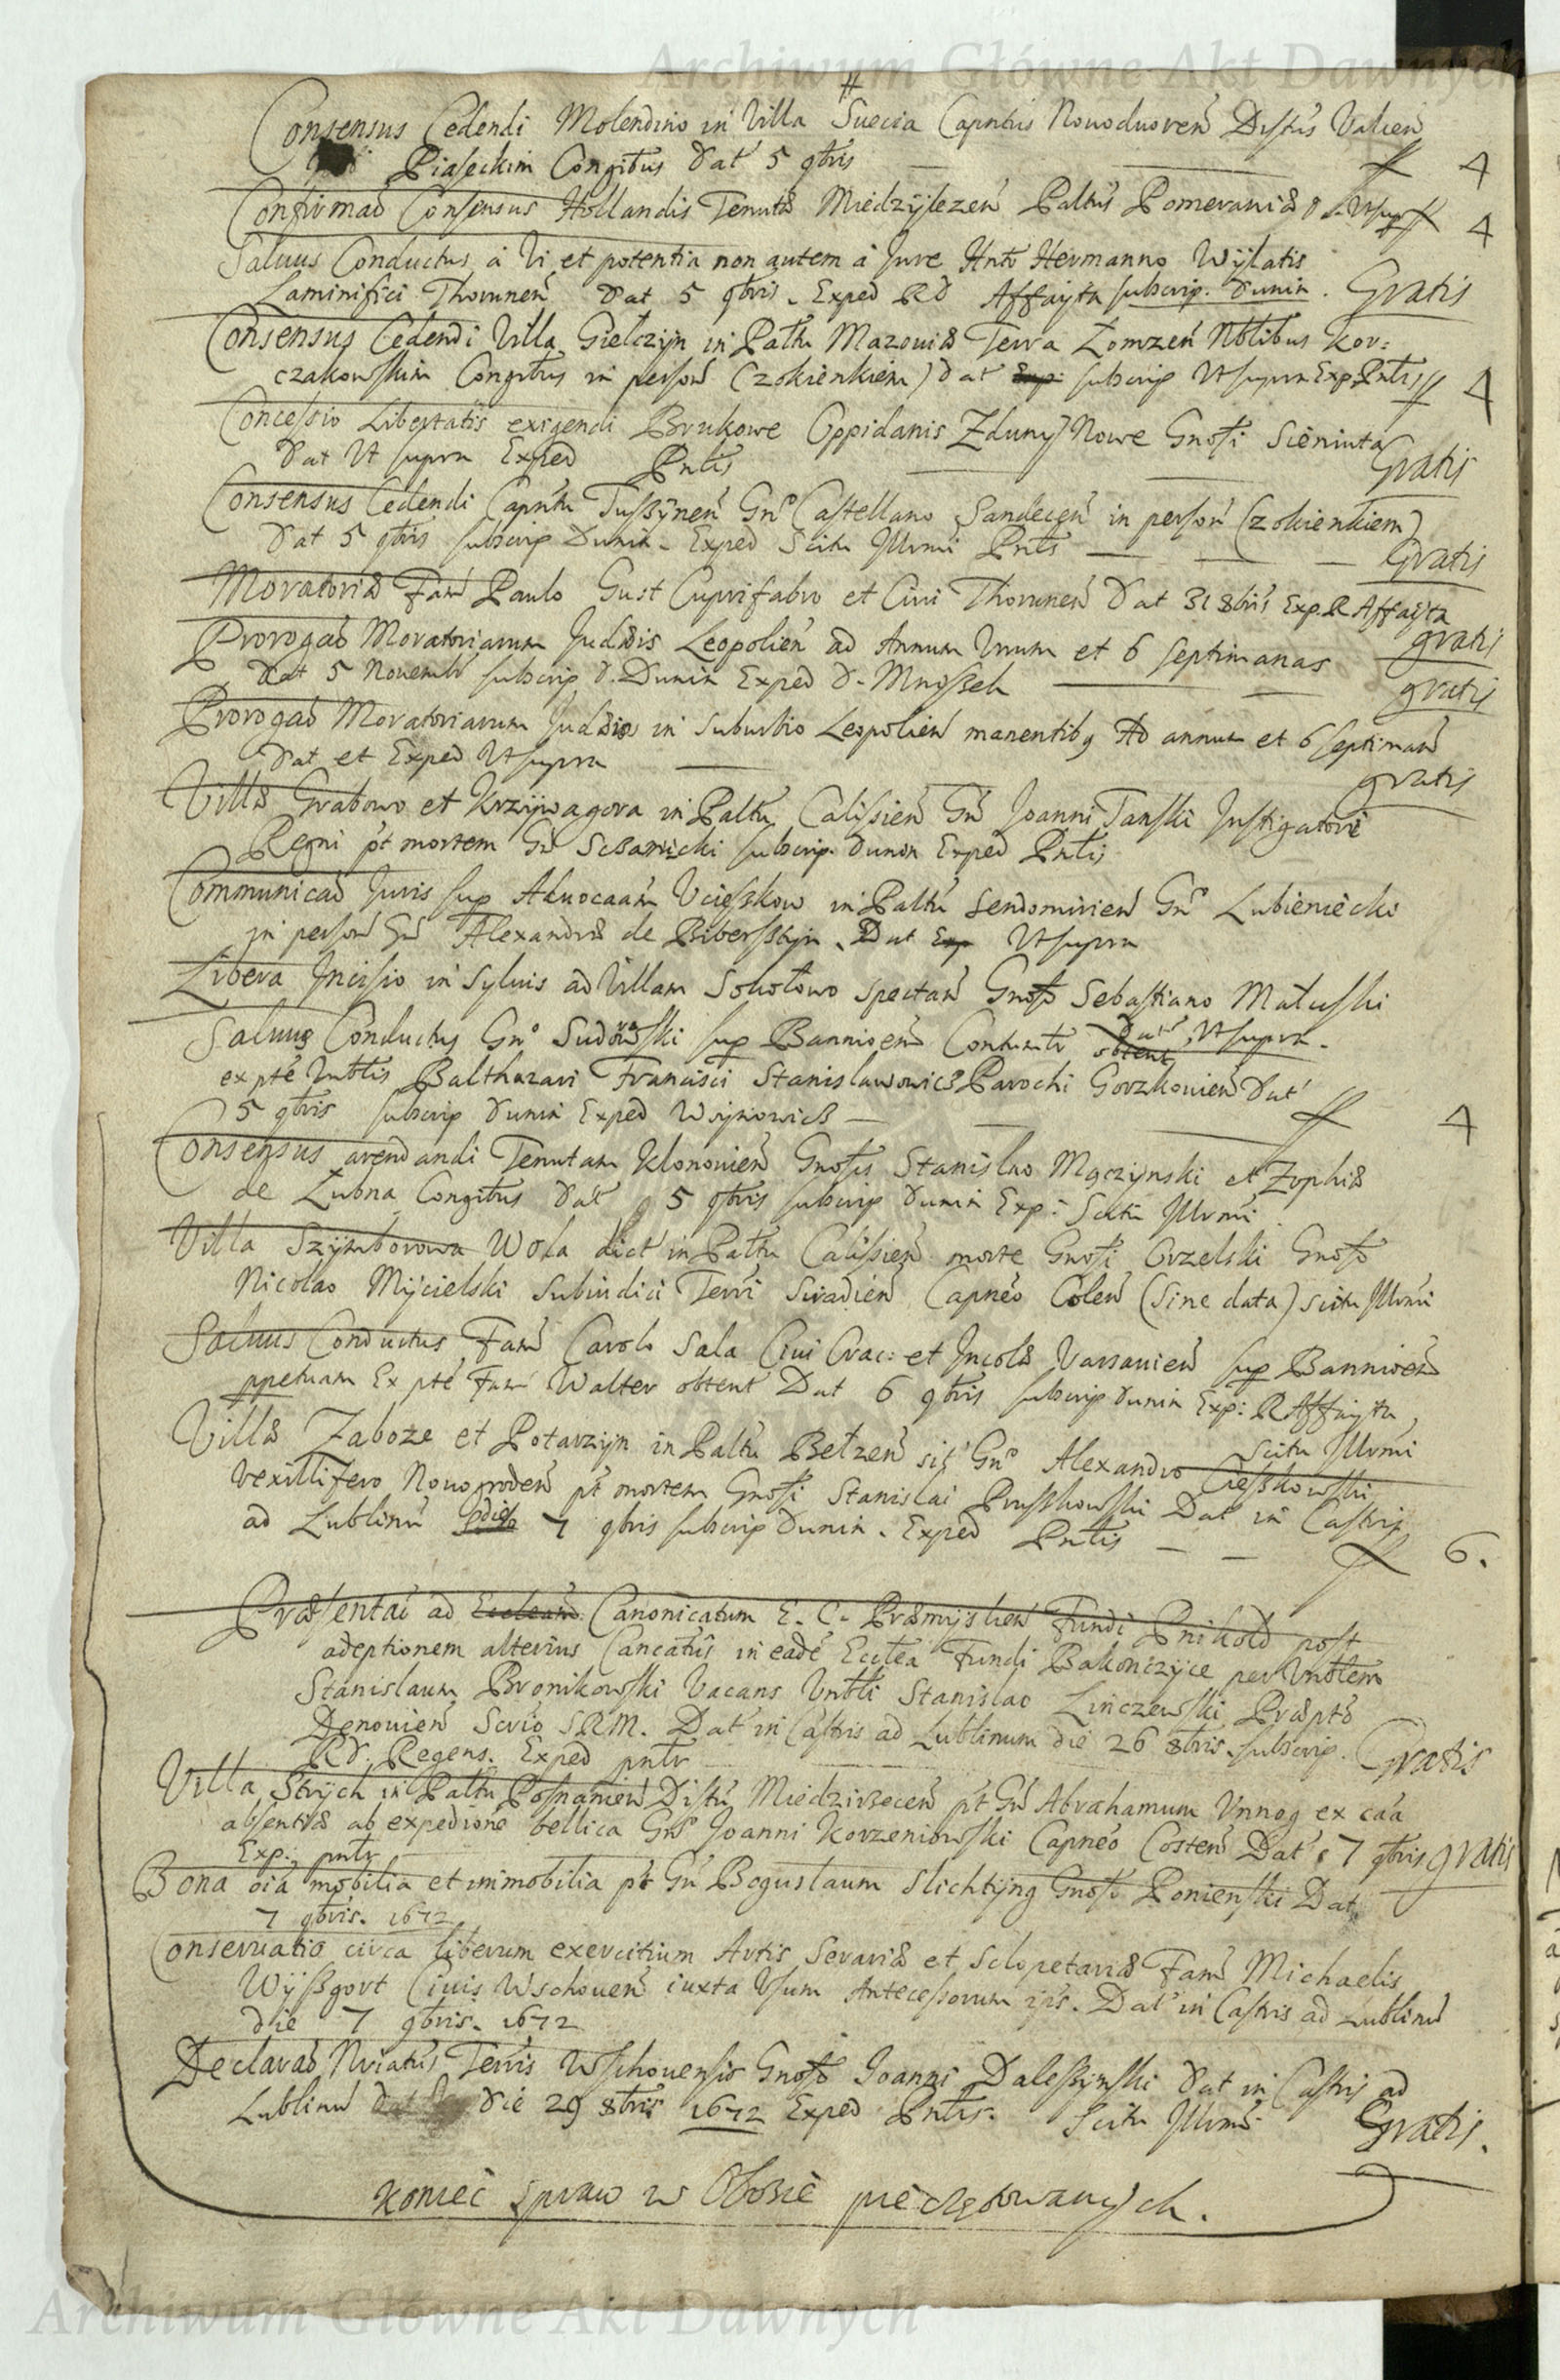 Archiwum Główne Akt Dawnych
Consensus Cedendi Molendino in Villa Suecia Capntus Nouoduoren Distus Valcen
Piaseckim Congibus Dat 5 9bris ff 4
Confirmao Consensus Hollandis Tenutæ Miedzÿlezen Paltus Pomeraniæ Vtsupra ff 4
Saluus Conductus à Vi et potentia non autem à Jure Hnto Hermanno Wÿlatis
Laminifici Thorunen Dat 5 9bris. Exped RD Affaÿta subscrip. Dunin. Gratis
Consensus Cedendi Villa Giełczÿn in Paltu Mazouiæ Terra Łomzen Nblibus Kor:
czakowskim Congibus in person (z okienkiem) Dat subscrip Vtsupra Exp. Pntis ff 4
Concessio Libertatis exigendi Brukowe Oppidanis Zdunÿ Nowe Gnosi Sieniuta
Dat Vt supra Exped Pntis Gratis
Consensus Cedendi Capntu Tuszÿnen Gno Castellano Sandecen in person (z okienkiem)
Dat 5 9bris subscrip Dunin. Exped Scitu Illrmi Pntis Gratis
Moratoriæ Fam Paulo Gust Cuprifabro et Ciui Thorunen Dat 31 8bris Exp. R Affaÿta
gratis
Prorogao Moratoriarum Judæis Leopolien ad Annum Vnum et 6 septimanas
Dat 5 Nouemb subscrip D. Dunin Exped D. Mnoszek gratis
Prorogao Moratoriarum Judæis in suburbio Leopolien manentibq Ad annum et 6 septiman
Dat et Exped Vtsupra gratis
Villæ Grabowo et Krzÿwagora in Paltu Calissien Gn Joanni Tanski Instigatori
Regni pt mortem Gn Sczanicki subscrip. Dunin Exped Pntis
Communicao Juris sup Aduocaam Vcieszkow in Paltu Sendomirien Gno Lubieniecko
in person Gn Alexandræ de Biberssztÿn. Dat Exp Vtsupra
Libera Incisio in Syluis ad Villam Sokołowo spectan Gnoso Sebastiano Małuski
Dat Vtsupra.
Saluus Conductus Gno Sudowski sup Bannioem Contumte obtent
ex pte Vnblis Balthazari Francisci Stanislawowicz Parochi Gorzkouien Dat
5 9bris subscrip Dunin Exped Woÿnowicz ff 4
Consensus arendandi Tenutam Klonouien Gnosis Stanislao Mączynski et Zophiæ
de Łubna Congibus Dat 5 9bris subscrip Dunin Exp: Scitu Illrmi
Villa Szÿmborowa Wola dict in Paltu Calissien morte Gnosi Orzelski Gnoso
Nicolao Mÿcielski Subiudici Terri Siradien Capneo Colen (sine data) scitu Illrmi
Saluus Conductus Fam Carolo Sala Ciui Crac: et Incolæ Varsauien sup Bannioem
ppetuam Ex pte Fam Walter obtent Dat 6 9bris subscrip Dunin Exp: R Affaÿta,
Scitu Illrmi
Villæ Zaboze et Potarzÿn in Paltu Bełzen sit Gno Alexandro Cieszkowski
Vexillifero Nouogroden pt mortem Gnosi Stanislai Pruszkowski Dat in Castris
ad Lublinu die 7 9bris subscrip Dunin. Exped Pntis ff 6.
Præsentao ad Eccleam Canonicatum E. C. Præmÿslien Fundi Pnikold post
adeptionem alterius Cancatus in eade Ecclea Fundi Bakonczÿce per Vnblem
Stanislaum Bronikowski Vacans Vnbli Stanislao Linczewski Præpto
Denouien Scrio SRM. Dat in Castris ad Lublinum die 26 8bris. subscrip.
RD. Regens. Exped pntr Gratis
Villa Strÿch in Paltu Posnanien Distu Miedzirzecen pt Gn Abrahamum Vnnog ex caa
absentiæ ab expedione bellica Gno Joanni Korzeniowski Capneo Costen Dat 7 9bris gratis
Exp: pntr
Bona oia mobilia et immobilia pt Gn Boguslaum Slichtÿng Gnoso Ponienski Dat
7 9bris. 1672
Conseruatio circa liberum exercitium Artis Serariæ et Sclopetariæ Fam Michaelis
Wÿszgort Ciuis Wschouen iuxta Vsum Antecessorum ips. Dat in Castris ad Lublinu
die 7 9bris. 1672
Declarao Nriatus Terris Wschouensis Gnoso Joanni Daleszÿnski Dat in Castris ad
Lublinu die 29 8bris 1672 Exped Pntis. Scitu Illrmi Gratis.
Koniec spraw w Obozie pieczętowanych.
Archiwum Główne Akt Dawnych